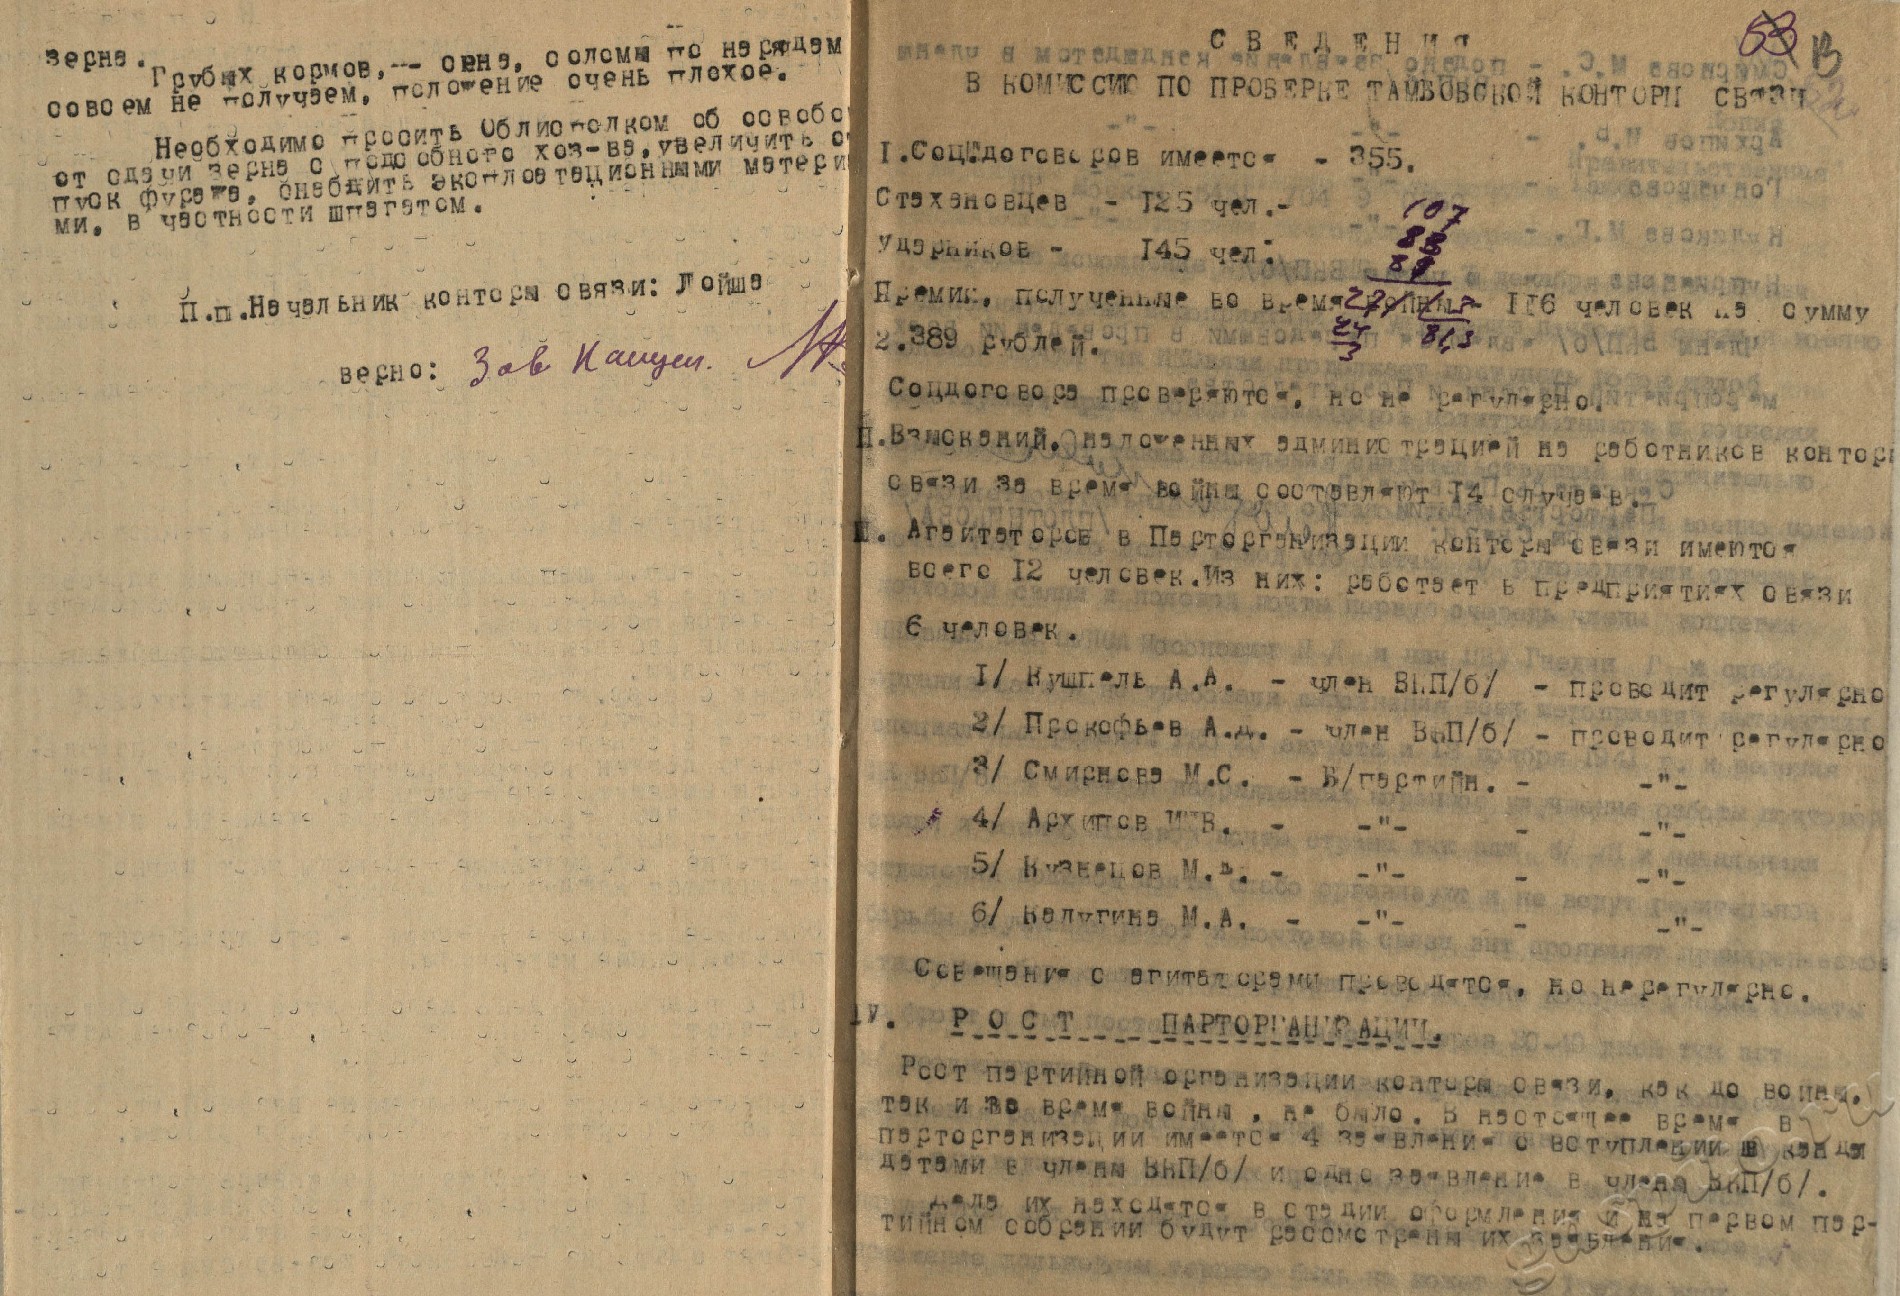 зерна.
Грубых кормов, -- сена, соломы по нарядам
совсем не получаем, положение очень плохое.
Необходимо просить Облисполком об освобо
от сдачи зерна с подсобного хоз-ва, увеличить от
пуск фуража, снабдить эксплоатационными матери
ми, в частности шпагатом.
П.п.Начальник конторы связи: Лойша
верно: Зав Канцел.
С В Е Д Е Н И Я
В КОМИССИЮ ПО ПРОВЕРКЕ ТАМБОВСКОЙ КОНТОРЫ СВЯЗИ
-"-
I.Соц.договоров имеется - 355.
Стахановцев - 125 чел.-
Ударников - 145 чел.
107
88
Премии, полученные во время войны- 116 человек на сумму
2.389 рублей.
24
3
81,3
Соцдоговора проверяются, но не регулярно.
П.Взысканий, наложенных администрацией на работников контор
связи за время войны составляют 14 случаев.
Ш. Агаитаторов в Парторганизации конторы связи имеются
всего 12 человек.Из них: работает в предприятиях связи
6 человек.
1/ Кушпель А.А. - член ВКП/б/ - проводит регулярно
2/ Прокофьев А.Д. - член ВКП/б/ - проводит регулярно
3/ Смирнова М.С. - Б/партийн. - -"-
4/ Архипов И.В. - -"- - -"-
5/ Кузнецов М.Д. - -"- - -"-
6/ Калугина М.А. - -"- - -"-
Совещания с агитаторами проводятся, но нерегулярно.
IV. Р О С Т ПАРТОРГАНИЗАЦИИ.
Рост партийной организации конторы связи, как до войны,
так и во время войны , не было. В настоящее время в
парторганизации имеется 4 заявления о вступлении в канди
датами в члены ВКП/б/ и одно заявление в члены ВКП/б/.
Дела их находятся в стадии оформления и на первом пар-
тийном собрании будут рассмотрены их заявления.